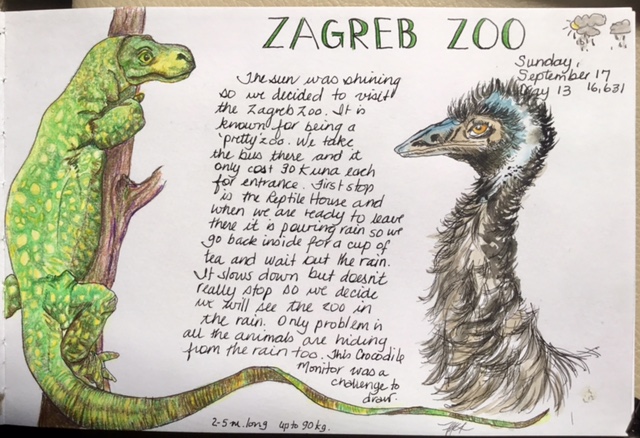 ZAGREB ZOO
Sunday,
September 17
Day 13 16,631
The sun was shining
so we decided to visit
the Zagreb Zoo. It is
known for being a
"pretty" zoo. We take
the bus there and it
only cost 30 Kuna each
for entrance. First stop
is the Reptile House and
when we are ready to leave
there it is pouring rain so we
go back inside for a cup of
tea and wait out the rain.
It slows down but doesn't
really stop so we decide
we will see the zoo in
the rain. Only problem is
all the animals are hiding
from the rain too. This Crocodile
Monitor was a
challenge to
draw.
2-5 m. long up to 90 kg.